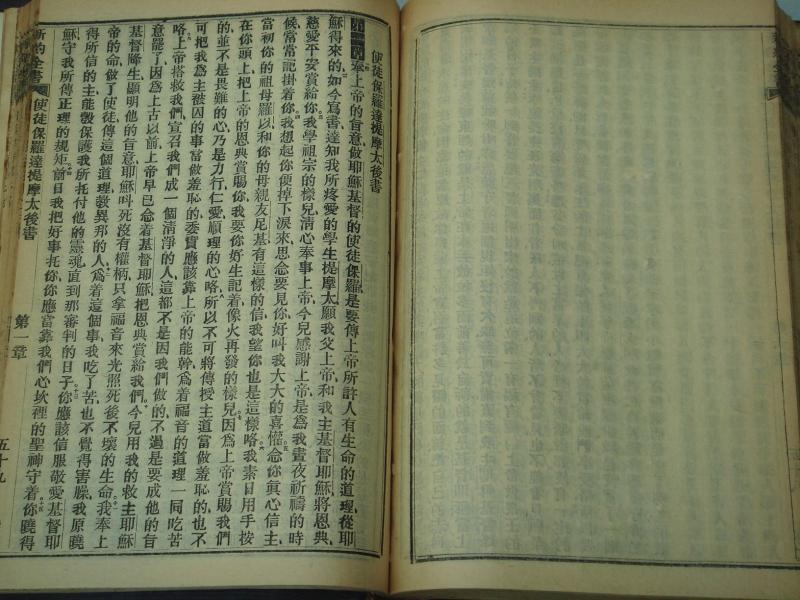 使徒保羅達提摩太後書
第一章奉上帝的旨意做耶穌基督的使徒保羅是要傳上帝所許人有生命的道理從耶
穌得來的如今寫書達知我所疼愛的學生提摩太願我父上帝和我主基督耶穌將恩典
慈愛平安賞給你我學祖宗的樣兒清心奉事上帝今兒感謝上帝是爲我晝夜祈禱的時
候常常記掛着你我想起你便掉下淚來思念要見你好叫我大大的喜懽念你眞心信主
當初你的祖母羅以和你的母親友尼基有這樣的信我望你也是這樣咯我素日用手按
在你頭上把上帝的恩典賞賜你我要你好生記着像火再發的樣兒因爲上帝賞賜我們
的並不是畏難的心乃是力行仁愛順理的心咯所以不可將傳授主道當做羞恥的也不
可把我爲主被囚的事當做羞恥的委實應該靠上帝的能幹爲着福音的道理一同吃苦
咯上帝搭救我們宣召我們成一個清淨的人這都不是因我們做的不過是要成他的旨
意罷了因爲上古以前上帝早已念着基督耶穌把恩典賞給我們今兒用我的救主耶穌
基督降生顯明他的旨意耶穌叫死沒有權柄只拿福音來光照死後不壞的生命我奉上
帝的命做了使徒傳這個道理敎異邦的人爲着這個事我吃了苦也不覺得害臊我原曉
得所信的主能彀保護我所托付他的靈魂直到那審判的日子你應該信服敬愛基督耶
穌守我所傳正理的規矩前日我把好事托你你應當靠我們心坎裡的聖神守着你曉得
新約全書 使徒保羅達提摩太後書 第一章 五十九